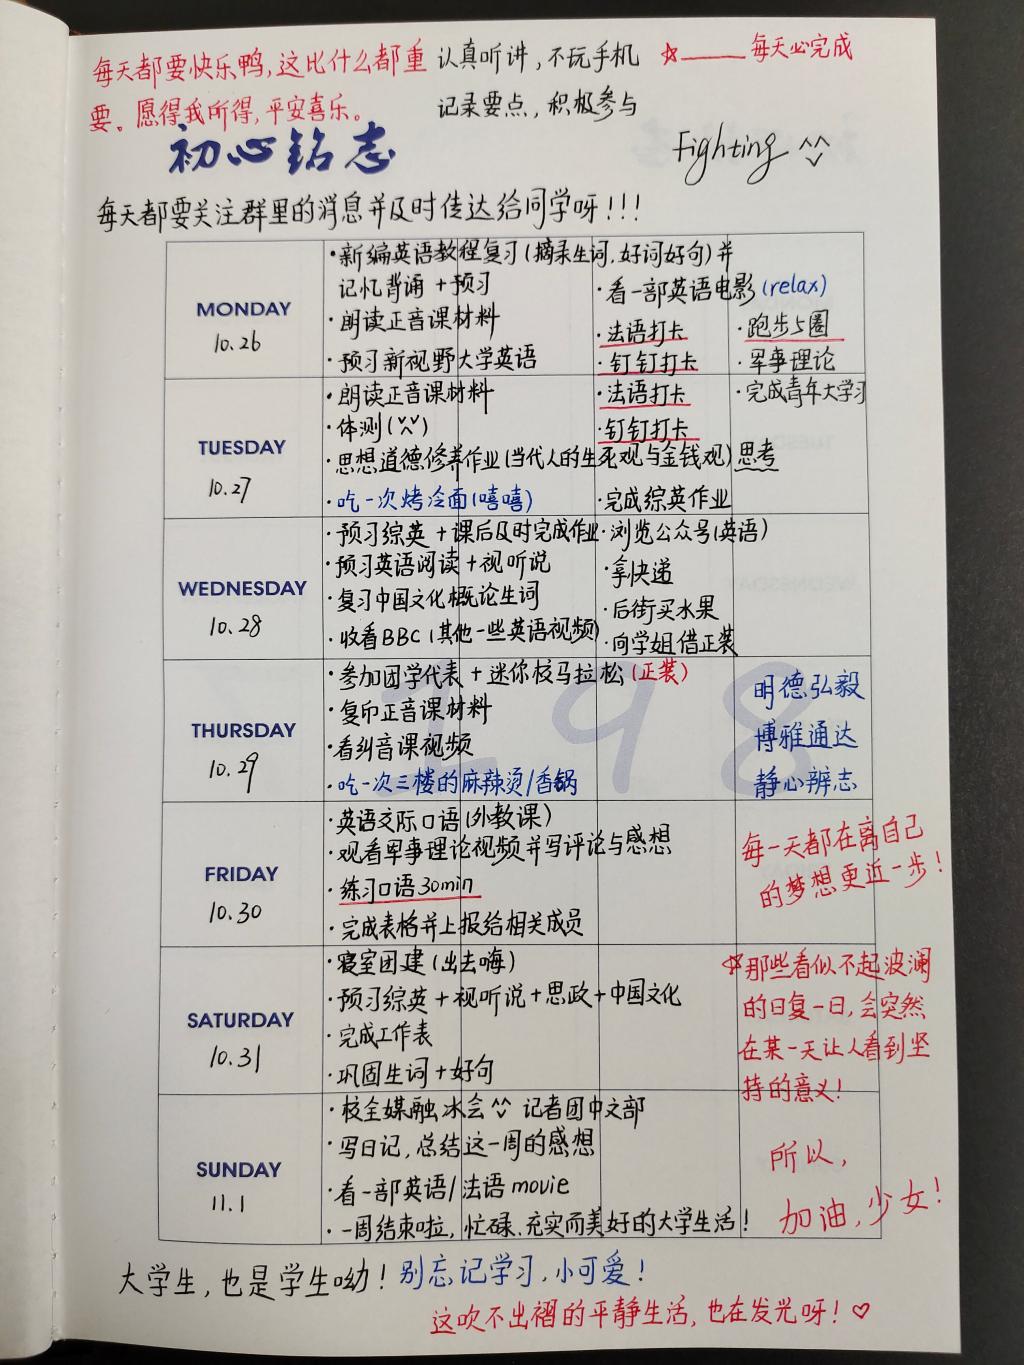 每天都要快乐鸭,这比什么都重
要。愿得我所得,平安喜乐。
认真听讲,不玩手机
记录要点,积极参与
☆——每天必完成
Fighting ^^
初心铭志
每天都要关注群里的消息并及时传达给同学呀!!!
MONDAY
10.26
·新编英语教程复习(摘录生词,好词好句)并
记忆背诵+预习
·看一部英语电影(relax)
·朗读正音课材料
·法语打卡
·跑步5圈
·预习新视野大学英语
·钉钉打卡
·军事理论
TUESDAY
10.27
·朗读正音课材料
·法语打卡
·完成青年大学习
·体测(^^)
·钉钉打卡
·思想道德修养作业(当代人的生死观与金钱观)思考
·吃一次烤冷面(嘻嘻)
·完成综英作业
WEDNESDAY
10.28
·预习综英+课后及时完成作业
·浏览公众号(英语)
·预习英语阅读+视听说
·拿快递
·复习中国文化概论生词
·后街买水果
·收看BBC(其他一些英语视频)
·向学姐借正装
THURSDAY
10.29
·参加团学代表+迷你校马拉松(正装)
·复印正音课材料
·看纠音课视频
·吃一次三楼的麻辣烫/香锅
明德弘毅
博雅通达
静心辨志
298
FRIDAY
10.30
·英语交际口语(外教课)
·观看军事理论视频并写评论与感想
·练习口语30min
·完成表格并上报给相关成员
每一天都在离自己
的梦想更近一步!
SATURDAY
10.31
·寝室团建(出去嗨)
·预习综英+视听说+思政+中国文化
·完成工作表
·巩固生词+好句
☆那些看似不起波澜
的日复一日,会突然
在某一天让人看到坚
持的意义!
SUNDAY
11.1
·校全媒融冰会^^ 记者团中文部
·写日记,总结这一周的感想
·看一部英语/法语movie
·一周结束啦,忙碌、充实而美好的大学生活!
所以,
加油,少女!
大学生,也是学生呦!别忘记学习,小可爱!
这吹不出褶的平静生活,也在发光呀!♡